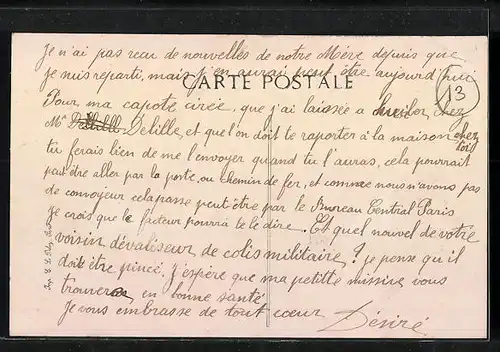 Je n'ai pas recu de nouvelles de notre Mère depuis que
je suis reparti, mais j'en aurai peut être aujourd'hui
CARTE POSTALE
13
Pour ma capote cirée, que j'ai laissée a chez
Mr Delille, et qu'on doit te raporter à la maison chez toi
tu ferais bien de me l'envoyer quand tu l'auras, cela pourrait
peut être aller par la poste, ou chemin de fer, et comme nous n'avons pas
de convoyeur cela passe peut être par le Bureau Central Paris
Je crois que le facteur pourra te le dire. Et quel nouvel de votre
voisin dévaliseur de colis militaire? je pense qu'il
doit être pincé. j'espère que ma petitte missive vous
trouvera en bonne santé
Je vous embrasse de tout cœur Désiré